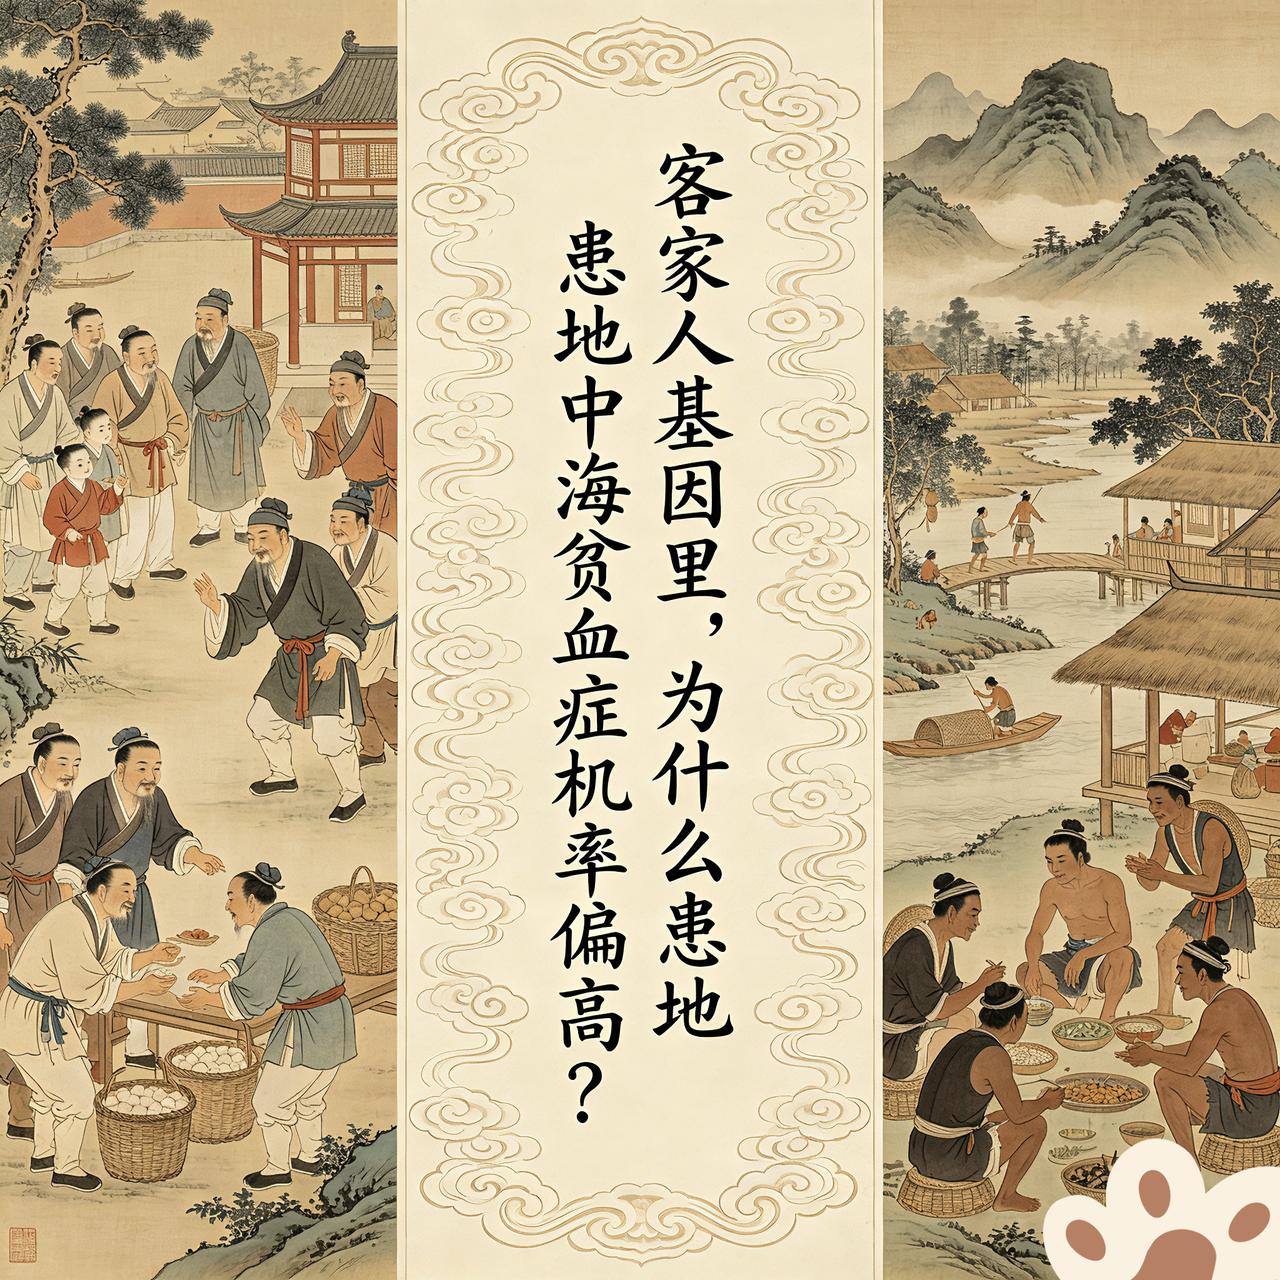 客家人基因里，为什么患地
患地中海贫血症机率偏高？